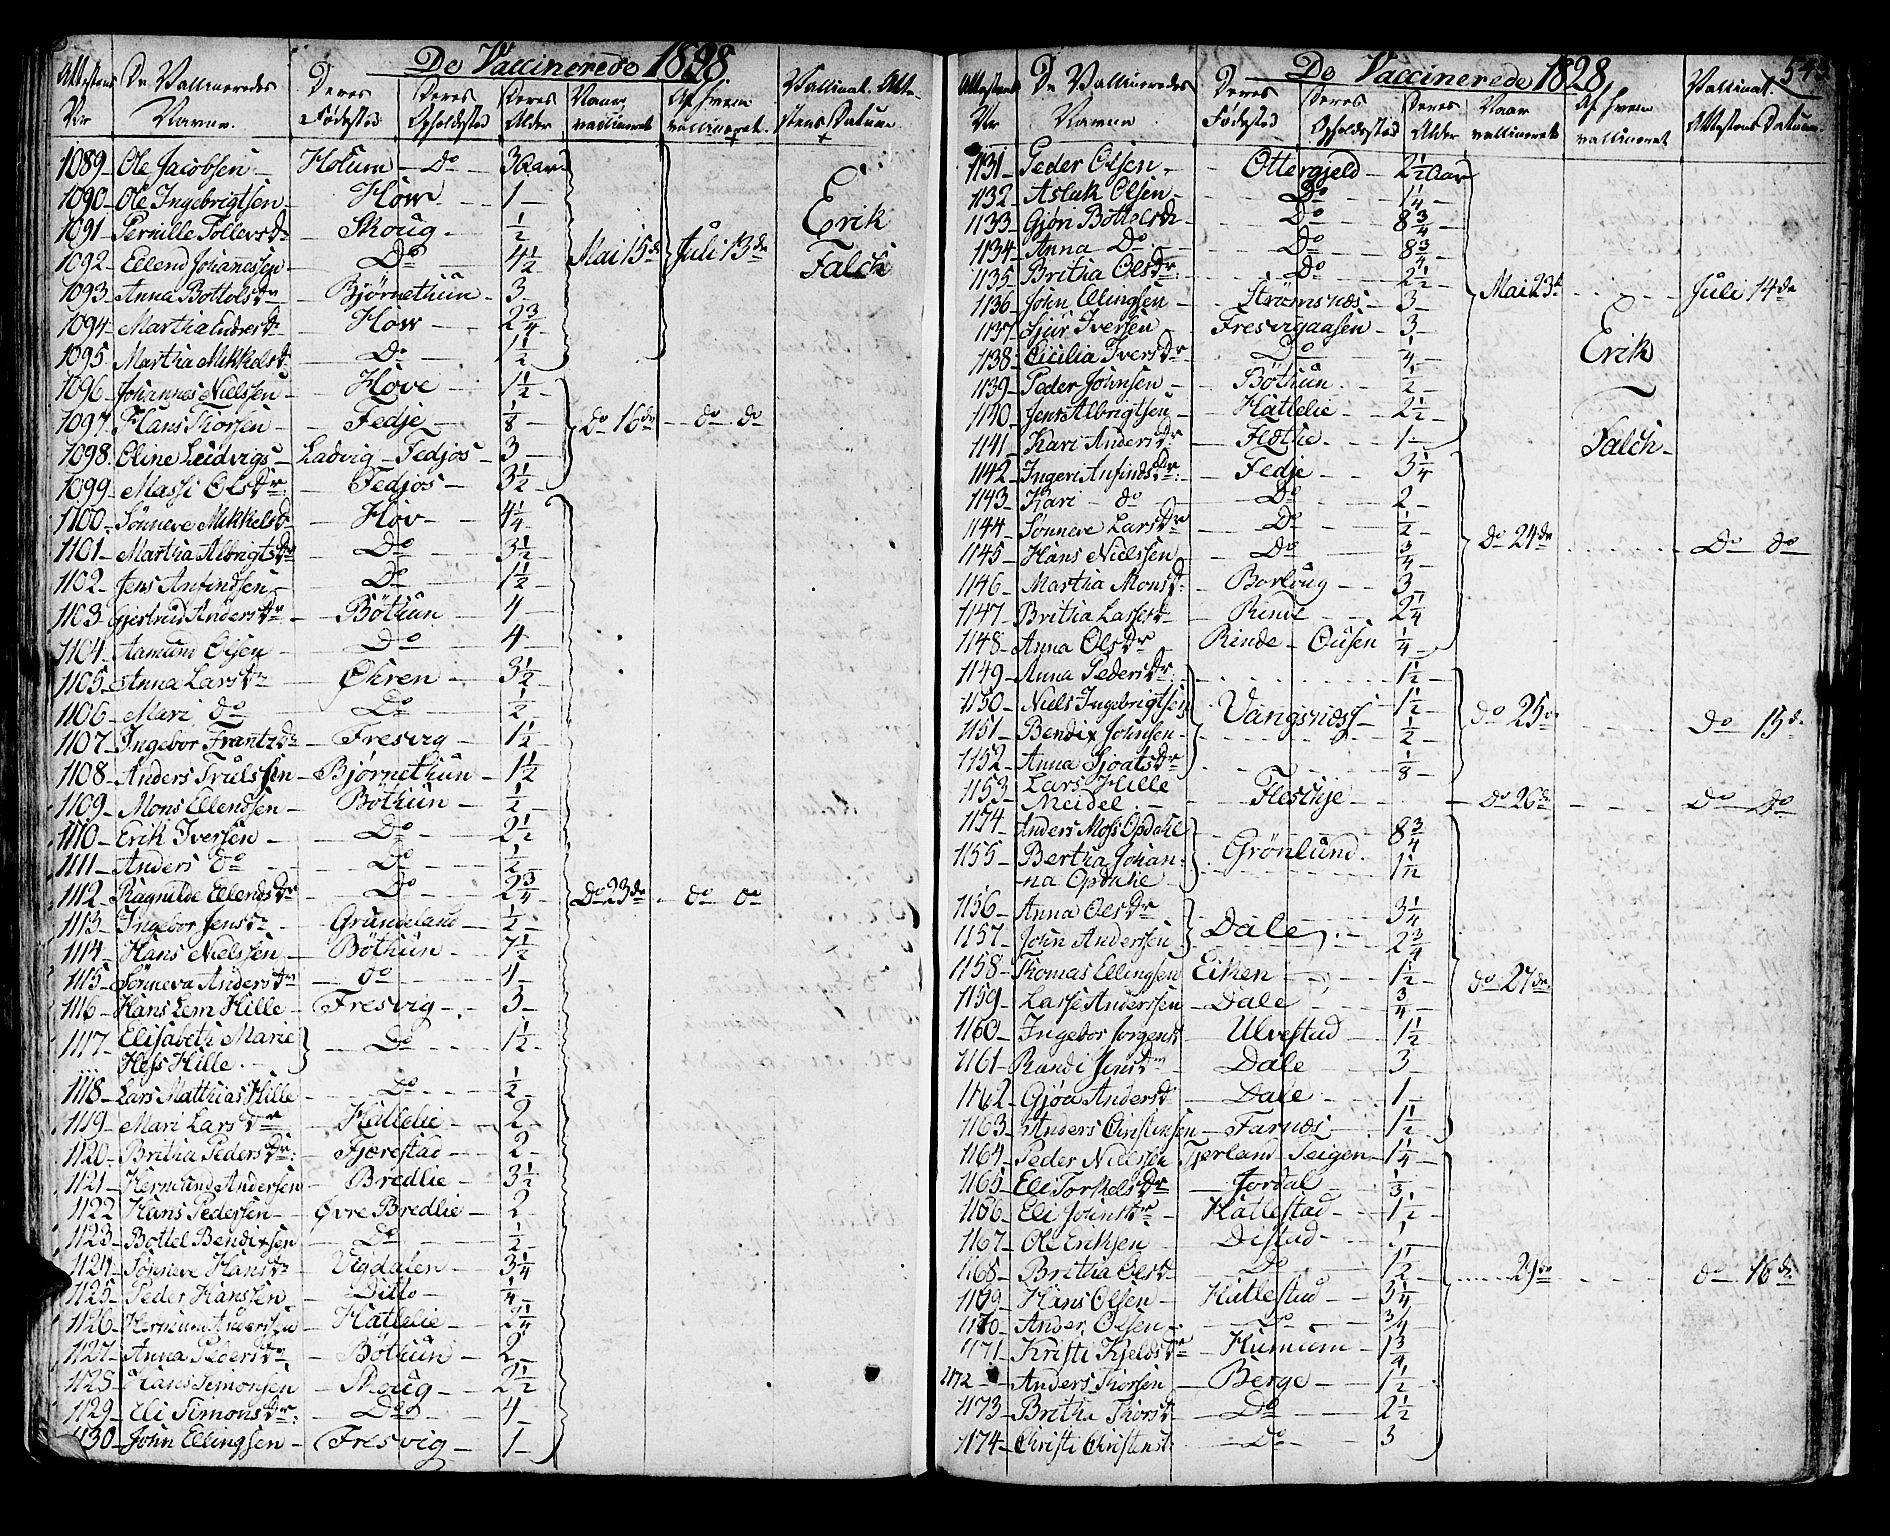 De Vaccinerede 1828.
Attestens Nr De Vaccineredes Navne. Deres Fødested Deres Opholdssted Deres Alder Naar vaccineret Af hvem vaccineret. Vaccinat. Attestens Datum
1089 Ole Jacobsen Holum Do 3 Aar
1090 Ole Ingebrigtsen How 1
1091 Pernille Tollevsdr Skoug ½
1092 Ellend Johanessen Do 4½ Mai 15de Juli 13de Erik Falch
1093 Anna Bottolsdr Bjørnethun 3
1094 Martha Endresdr How 2¾
1095 Martha Mikkelsdr Do 1½
1096 Johannes Nielssen Hove 1½
1097 Hans Thorsen Fedje ⅛ do 16de do do
1098 Oline Leidvigs Ladvig Fedjos 3
1099 Massi Olsdr Fedjos 3½
1100 Sönneve Mikkelsdr Hov 4¼
1101 Martha Albrigtsdr Do 3½
1102 Jens Anfindsen Do 1½
1103 Gjertrud Andersdr Böthun 4
1104 Aamund Olsen Do 4
1105 Anna Larsdr Øhren 3½
1106 Mari do Do ½
1107 Ingebor Frantzdr Fresvig 1½
1108 Anders Trulssen Bjørnethun 1½
1109 Mons Ellendsen Böthun ½
1110 Erik Iversen Do 2½
1111 Anders do Do ½
1112 Ragnilde Ellendsdr Do 2¾ Do 23de do do
1113 Ingebor Jensdr Grundeland ½
1114 Hans Nielssen Böthun 7½
1115 Sönneva Andersdr do 4
1116 Hans Lem Hille Fresvig 3
1117 Elisabeth Marie Do 1½
Hess Hille
1118 Lars Matthias Hille Do ½
1119 Mari Larsdr Hatlelie 2
1120 Britha Pedersdr Fjærestad 2
1121 Hermund Andersen Bredlie 3½
1122 Hans Pedersen Øvre Bredlie 2
1123 Bottel Bendixsen Do ½
1124 Sönneve Hansdr Vigdalen 3¼
1125 Peder Hanssen Ditto ¼
1126 Hermund Anderssen Hatlelie 2¼
1127 Anna Pedersdr Böthun 2
1128 Hans Simonsen Skoug 2½
1129 Eli Simonsdr Do 4
1130 John Ellingsen Fresvig 1
De Vaccinerede 1828.
543
Attestens Nr De Vaccineredes Navne Deres Fødested Deres Opholdssted Deres Alder Naar vaccineret Af hvem vaccineret Vaccinat. Attestens Datum.
1131 Peder Olsen Ottergjeld 2½ Aar
1132 Aslak Olsen Do 1¼
1133 Gjøri Bottolsdr Do 8¾
1134 Anna Do Do 8¾
1135 Britha Olsdr Do 2½
1136 John Ellingsen Strømsnæs 3 Mai 23de Juli 14de
1137 Sjur Iversen Fresvigaasen 3
1138 Cicilia Iversdr Do ¼ Erik Falch
1139 Peder Johnsen Böthun ½
1140 Jens Albrigtsen Hatlelie 2½
1141 Kari Andersdr Hötie 1
1142 Ingeri Anfindsdr Fedje 3¼
1143 Kari do Do 2
1144 Sönneve Larsdr Do ½
1145 Hans Nielssen Do ¾ do 24de Do do
1146 Martha Monsdr Borloug 3
1147 Britha Lassesdr Rinde 2¼
1148 Anna Olsdr Rinde Ousen ¼
1149 Anna Pedersdr 1½
1150 Niels Ingebrigtsen Vangsnæss 1½ do 25de Do 15de
1151 Bendix Johnsen ½
1152 Anna Sjoatsdr ⅛
1153 Lars Hille Meidel Fleschje do 26de Do do
1154 Anders Moss Opdahl Grönlund 8¾
1155 Bertha Johanna Opdahl 1½
1156 Anna Olsdr Dale 3¼
1157 John Anderssen 2¾
1158 Thomas Ellingsen Eiken 1½ do 27de
1159 Lasse Anderssen Dale ¾
1160 Ingebor Jorgensd Ulvestad 1½
1161 Randi Jensdr Dale 3
1162 Gjøa Andersd Dale 1
1163 Anders Christensen Farnæs 1½
1164 Peder Nielssen Fjerland Seigen 1¼
1165 Eli Torkelsdr Jordal ⅓
1166 Eli Johnsdr Hatlestad 1½
1167 Ole Eriksen Distad 1
1168 Britha Olsdr Do 1½ 29de do 16de
1169 Hans Olsen Hatlestad 3¼
1170 Anders Olsen Do ¾
1171 Kristi Kjeldsdr Humum 1¾
1172 Anders Thorsen Berge 1½
1173 Britha Thorsd Do 2½
1174 Christi Christensd Do 3